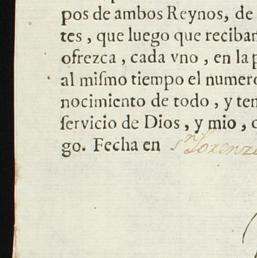 pos de ambos Reynos, de
tes , que luego que reciban
ofrezca , cada vno , en la p
al miſmo tiempo el numero
nocimiento de todo , y ten
ſervicio de Dios , y mio , c
go. Fecha en Sn Lorenzo